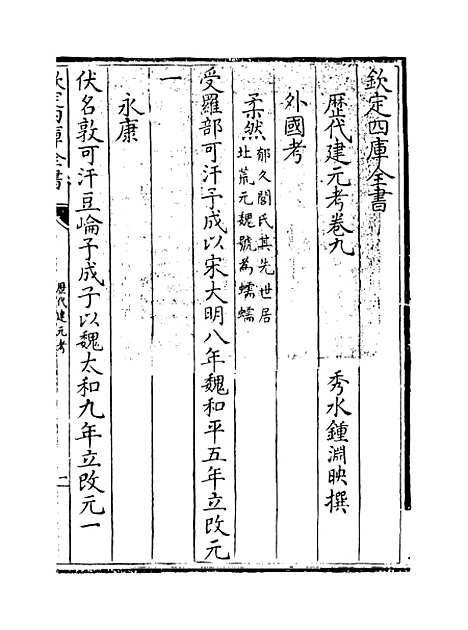 欽定四庫全書
歴代建元考卷九
秀水鍾淵映撰
外國考
柔然郁久閭氏其先世居
北荒元魏號為蠕蠕
受羅部可汗予成以宋大明八年魏和平五年立改元
一
永康
伏名敦可汗豆崘予成子以魏太和九年立改元一
欽定四庫全書
歴代建元考